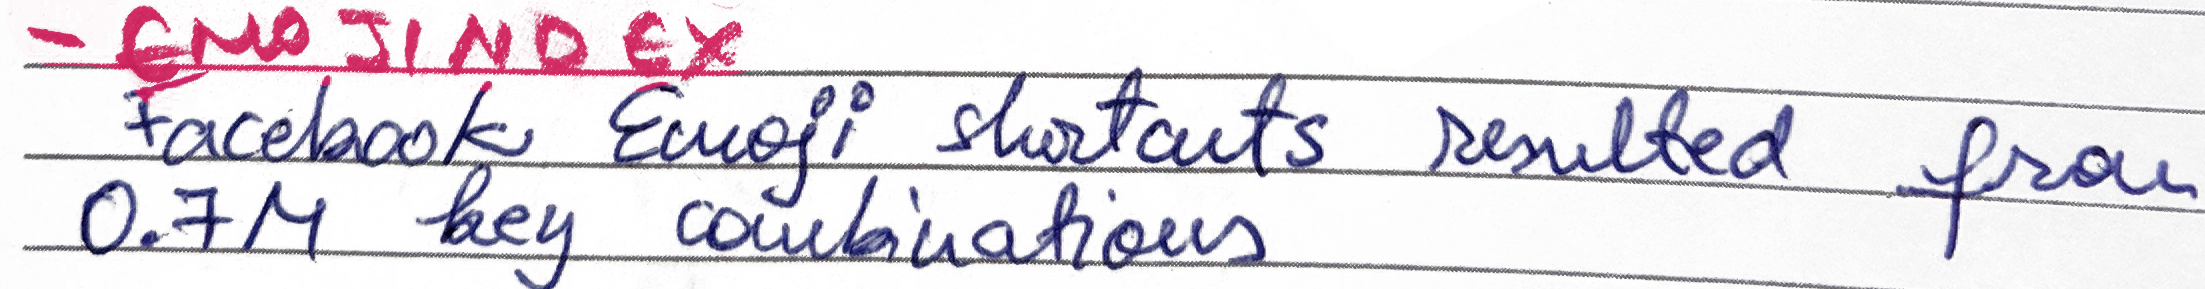 - EMOJINDEX
Facebook Emoji shortcuts resulted from
0.7M key combinations